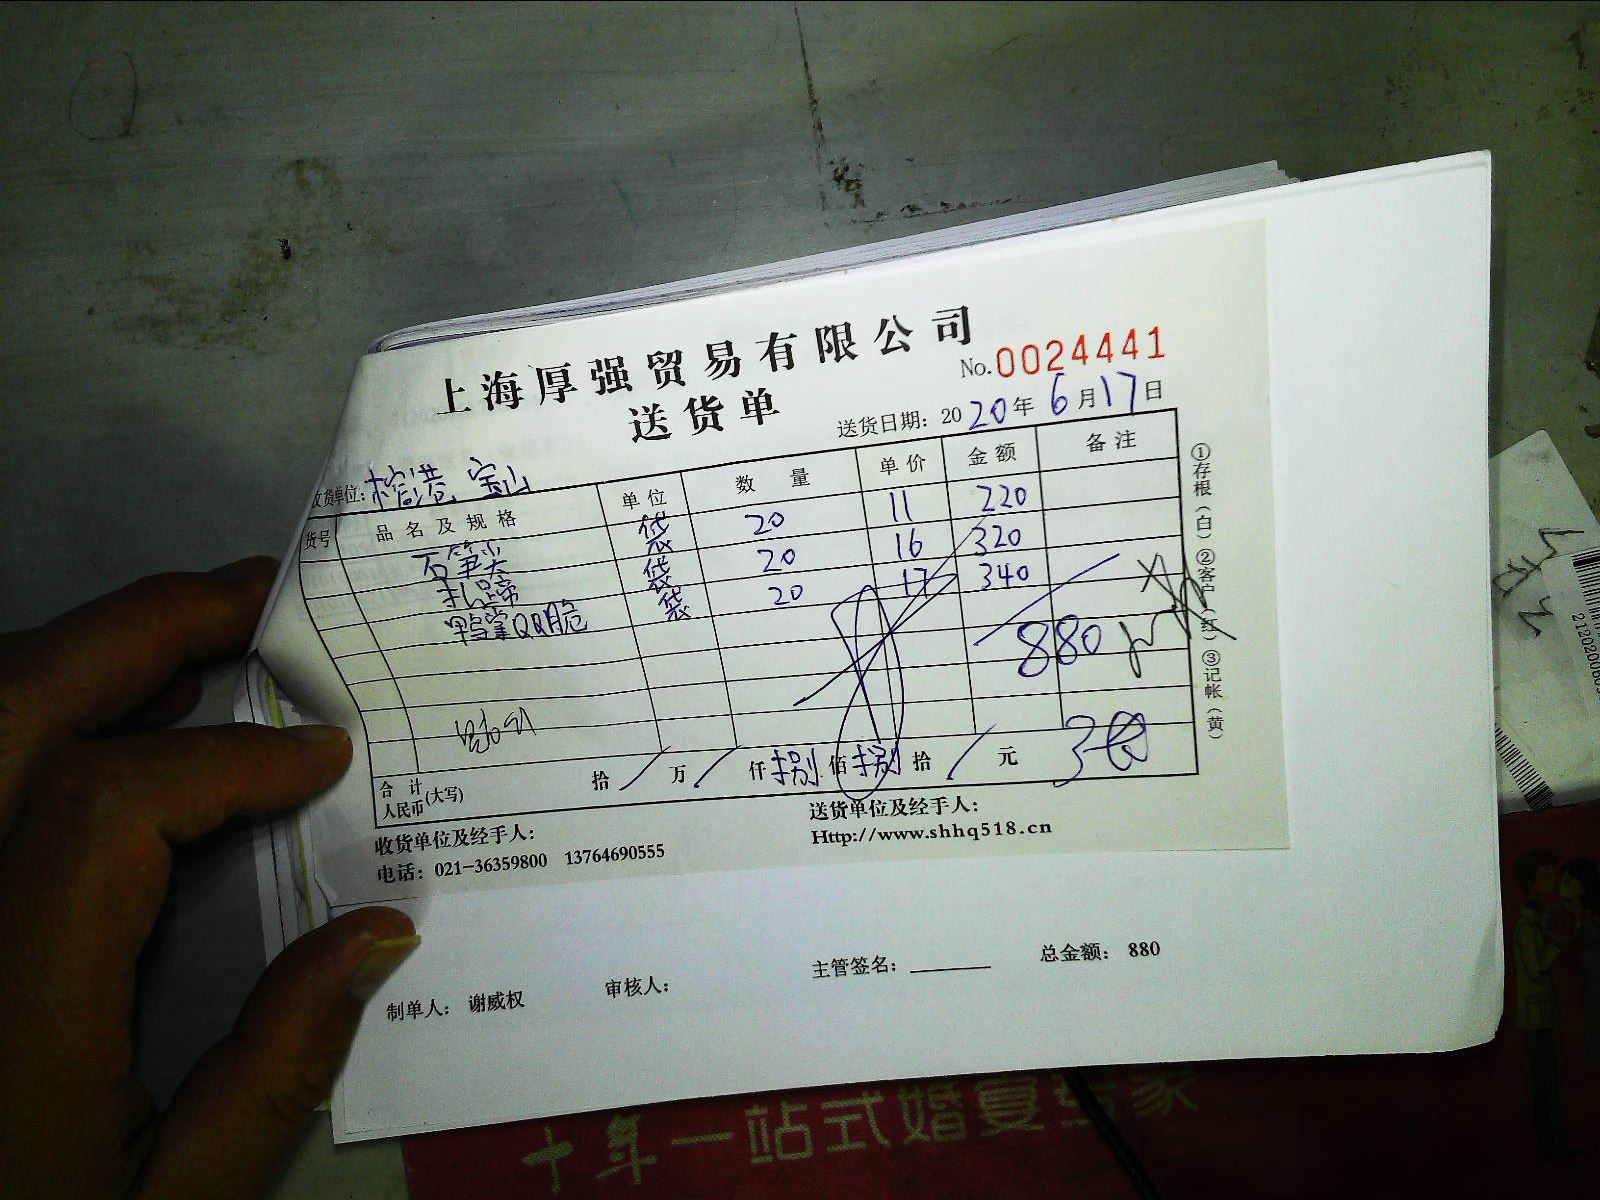 上海厚强贸易有限公司
送货单
No.0024441
送货日期：2020年6月17日
收货单位：榕港 宝山
货号 品名及规格 单位 数量 单价 金额 备注
石笋尖 袋 20 11 220
扎蹄 袋 20 16 320
鸭掌QQ脆 袋 20 17 340
880
合计人民币(大写) 拾/万/仟捌佰捌拾/元
收货单位及经手人：
送货单位及经手人：
电话：021-36359800 13764690555
Http://www.shhq518.cn
①存根(白)②客户(红)③记帐(黄)
制单人：谢威权
审核人：
主管签名：
总金额：880
十年一站式婚宴专家